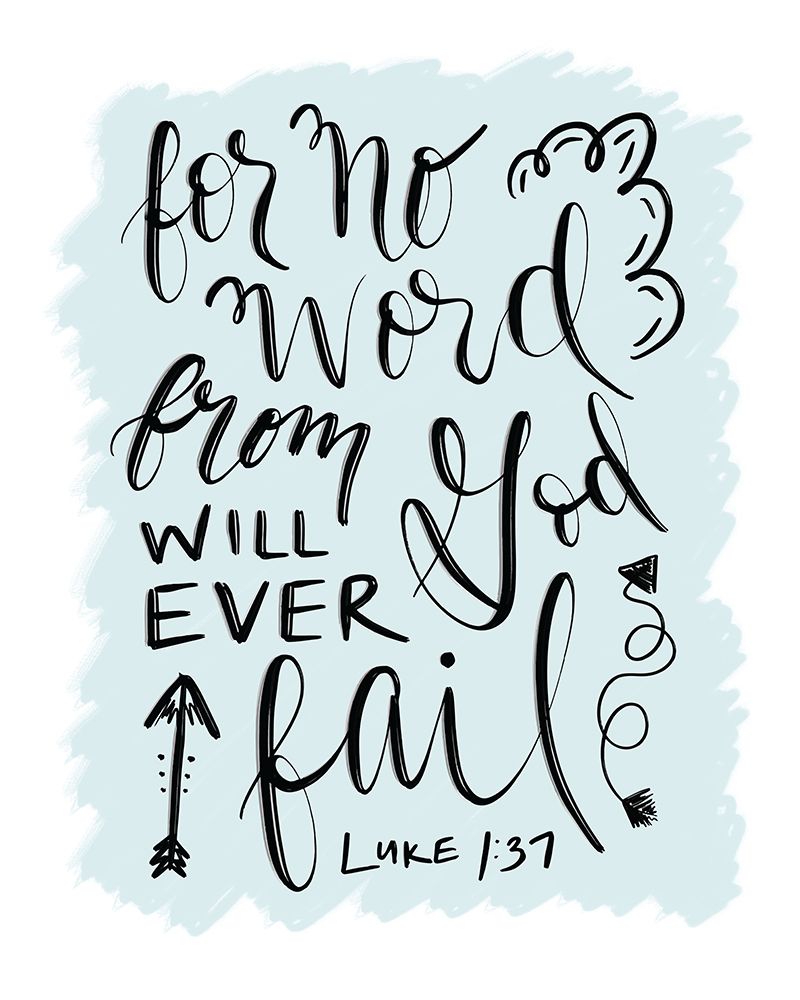 for No
Word
from God
WILL
EVER
fail
LUKE 1:37